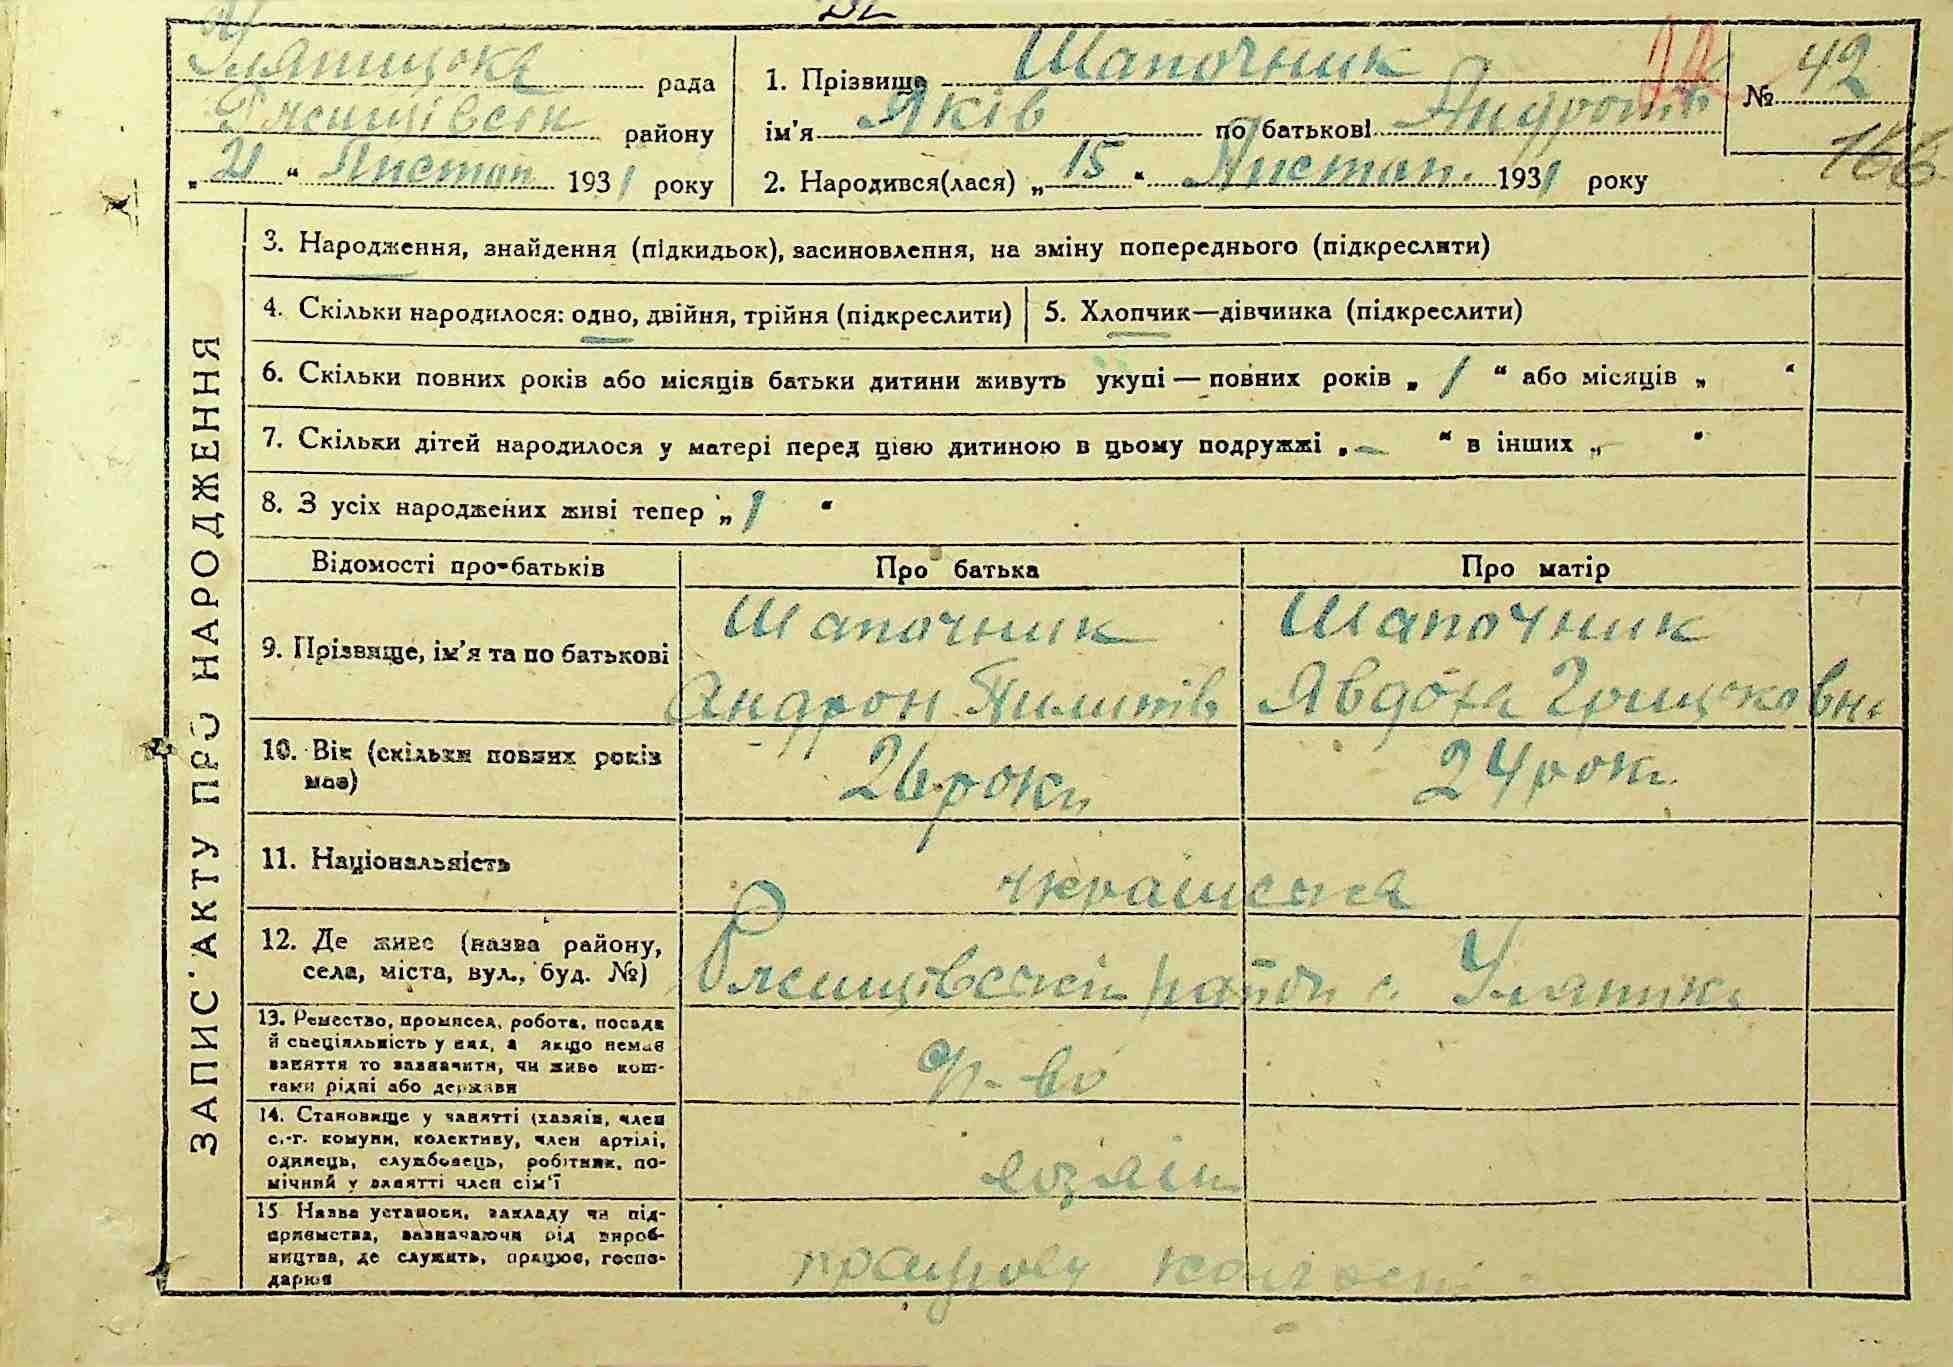 Уляницька рада
Ржищівськ району
„21“ Листоп 1931 року
1. Прізвище Шапочник
ім'я Яків по батькові Андронів
2. Народився(лася) „15“ Листоп. 1931 року
№ 42
166
ЗАПИС АКТУ ПРО НАРОДЖЕННЯ
3. Народження, знайдення (підкидьок), засиновлення, на зміну попереднього (підкреслити)
4. Скільки народилося: одно, двійня, трійня (підкреслити)
5. Хлопчик—дівчинка (підкреслити)
6. Скільки повних років або місяців батьки дитини живуть укупі — повних років „ 1 “ або місяців „ “
7. Скільки дітей народилося у матері перед цією дитиною в цьому подружжі „ – “ в інших „ “
8. З усіх народжених живі тепер „ 1 “
Відомості про батьків
Про батька
Про матір
9. Прізвище, ім'я та по батькові
Шапочник
Андрон Пилипів
Шапочник
Явдоха Грицьковна
10. Вік (скільки повних років
має)
26 роки
24 роки
11. Національність
українська
12. Де живе (назва району,
села, міста, вул., буд. №)
Ржищівський район с. Уляники
13. Ремество, промисел, робота, посада
й спеціяльність у них, а якщо немає
заняття то зазначити, чи живе кош-
тами рідні або держави
14. Становище у занятті (хазяїн, член
с.-г. комуни, колективу, член артілі,
одинець, службовець, робітник, по-
мічний у занятті член сім'ї
хозяїн
15. Назва установи, закладу чи під-
приємства, зазначаючи рід вироб-
ництва, де служить, працює, госпо-
дарює